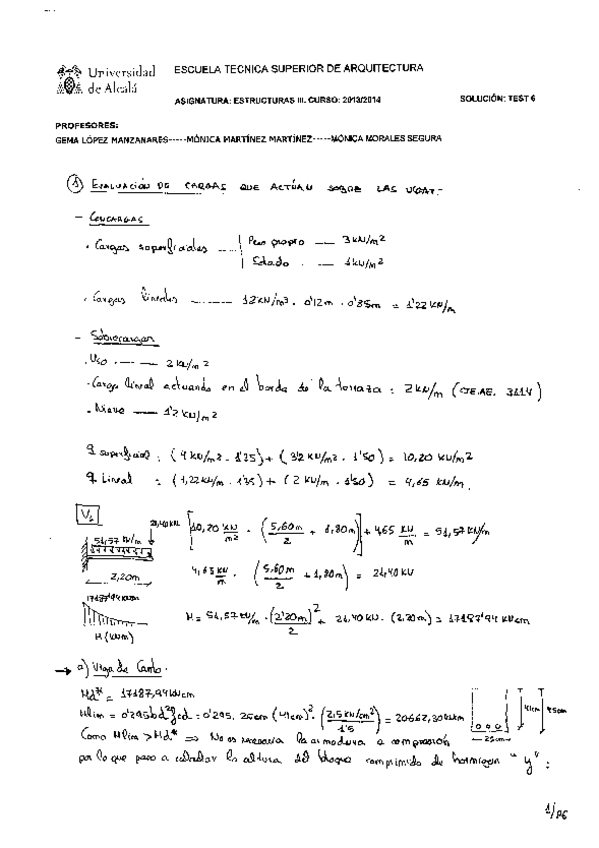 Universidad
de Alcalá
ESCUELA TECNICA SUPERIOR DE ARQUITECTURA
ASIGNATURA: ESTRUCTURAS III. CURSO: 2013/2014
SOLUCIÓN: TEST 6
PROFESORES:
GEMA LÓPEZ MANZANARES-----MÓNICA MARTÍNEZ MARTÍNEZ-----MÓNICA MORALES SEGURA
1 EVALUACIÓN DE CARGAS QUE ACTÚAN SOBRE LAS VIGAS.-
- CONCARGAS
· Cargas superficiales ..... Peso propio — 3 kN/m²
Solado . — 1 kN/m²
· Cargas lineales ------- 12 kN/m³ . 0'12m . 0'85m = 1'22 kN/m
- Sobrecargas
· Uso . — - — 2 kN/m²
· Carga lineal actuando en el borde de la terraza : 2 kN/m (CTE.AE. 3.1.1.4)
· Nieve — 1'2 kN/m²
q superficial : (4 kN/m² . 1'35) + (3'2 kN/m² . 1'50) = 10,20 kN/m²
q Lineal : (1,22 kN/m . 1'35) + (2 kN/m . 1'50) = 4,65 kN/m.
V₁
51,57 kN/m
21,40 kN
[10,20 kN/m² . (5,60m/2 + 1,80m)] + 4,65 kN/m = 51,57 kN/m
2,20m
4,65 kN/m . (5,60m/2 + 1,80m) = 21,40 kN
17187'94 kNcm
M (kNm)
M = 51,57 kN/m . (2'20m)²/2 + 21,40 kN . (2,20m) = 17187'94 kNcm
→ a) Viga de Canto.
Md* = 17187,94 kNcm
Mlim = 0'295bd²fcd = 0'295. 25cm (41cm)² . (2,5 kN/cm²/1'5) = 20662,30 kNcm
41cm 45cm
25cm
Como Mlim > Md* ⇒ No es necesaria la armadura a compresión
por lo que paso a calcular la altura del bloque comprimido de hormigón "y":
1/